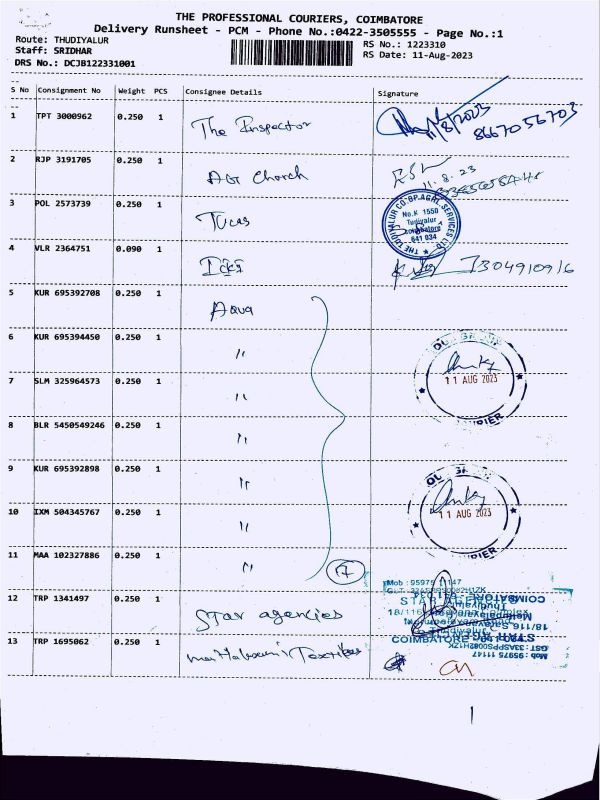 THE PROFESSIONAL COURIERS, COIMBATORE
Delivery Runsheet - PCM - Phone No.:0422-3505555 - Page No.:1
Route: THUDIYALUR
RS No.: 1223310
Staff: SRIDHAR
RS Date: 11-Aug-2023
DRS No.: DCJB122331001
S No Consignment No Weight PCS Consignee Details Signature
1 TPT 3000962 0.250 1 The Inspector 8667056703
2 RJP 3191705 0.250 1 AG Church 11.8.23
3 POL 2573739 0.250 1 Tucas
THE TUDIYALUR CO-OP.AGRL.SERVICES LTD.
No.K 1550
Tudiyalur
Coimbatore
641 034
4 VLR 2364751 0.090 1 7304910916
5 KUR 695392708 0.250 1 Aqua
6 KUR 695394450 0.250 1 "
11 AUG 2023
7 SLM 325964573 0.250 1 "
8 BLR 5450549246 0.250 1 "
9 KUR 695392898 0.250 1 "
10 IXM 504345767 0.250 1 "
11 AUG 2023
11 MAA 102327886 0.250 1 " 7
Mob : 95975 11147
12 TRP 1341497 0.250 1 Star agencies
13 TRP 1695062 0.250 1
COIMBATORE
Mob : 95975 11147